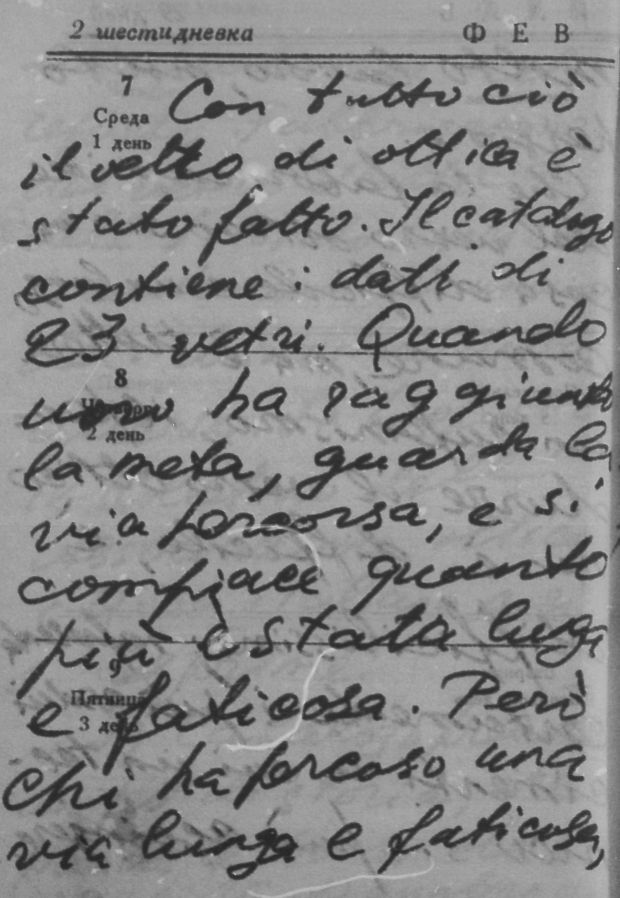 2 шестидневка
Ф Е В
7
Среда
1 день
Con tutto ciò
il vetro di ottica è
stato fatto. Il catalogo
contiene i dati di
23 vetri. Quando
8
2 день
uno ha raggiunto
la meta, guarda la
via percorsa, e si
compiace quanto
più è stata lunga
9
Пятница
3 день
e faticosa. Però
chi ha percoso una
via lunga e faticosa,